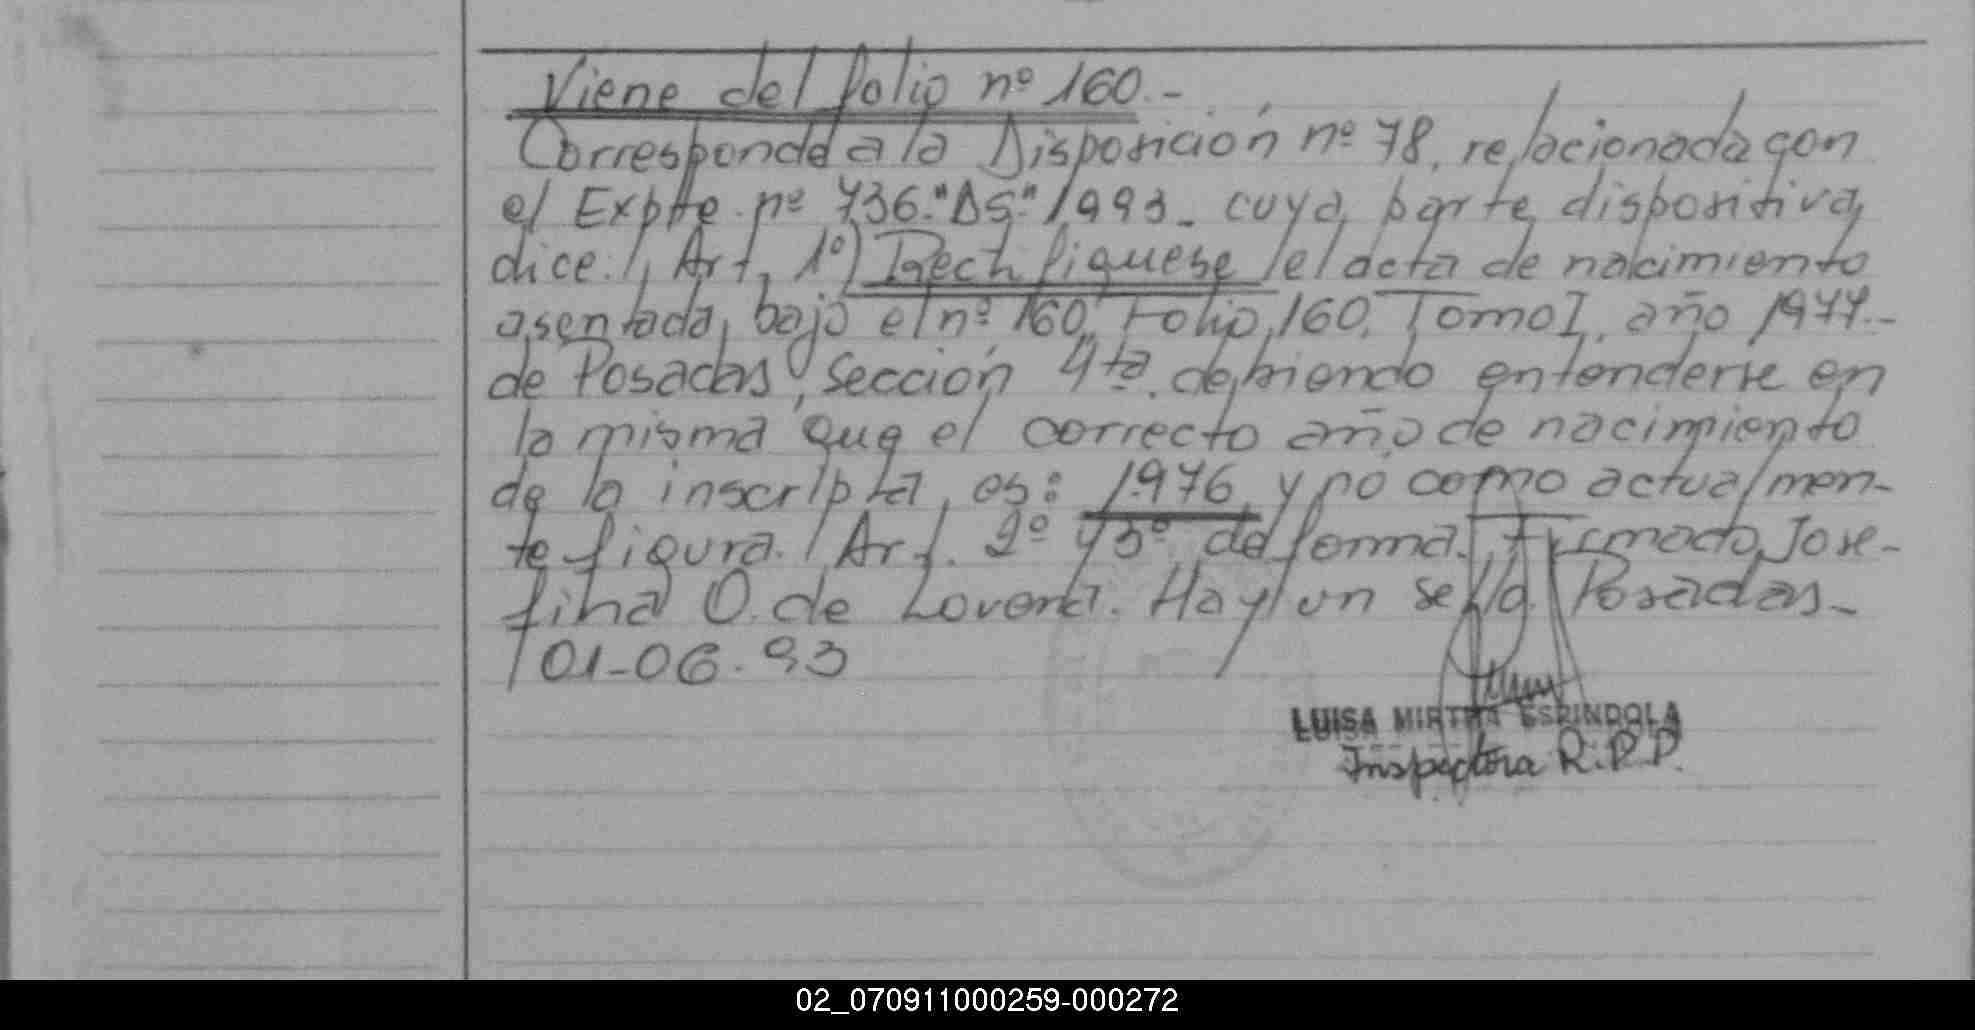 Viene del folio nº 160.-
Corresponde a la Disposición nº 78, relacionada con
el Expte. nº 736."DS" 1993 - cuya parte dispositiva
dice: Art. 1º) Rectifiquese el acta de nacimiento
asentada bajo el nº 160, Folio 160, Tomo I, año 1977.-
de Posadas, Sección 4ta. debiendo entenderse en
la misma que el correcto año de nacimiento
de la inscripta, es: 1976, y no como actualmen-
te figura. Art. 2º y 3º de forma. Firmado Jose-
fina O. de Lovera. Hay un sello. Posadas-
01-06.93
LUISA MIRTHA ESPINDOLA
Inspectora R.P.P.
02_070911000259-000272